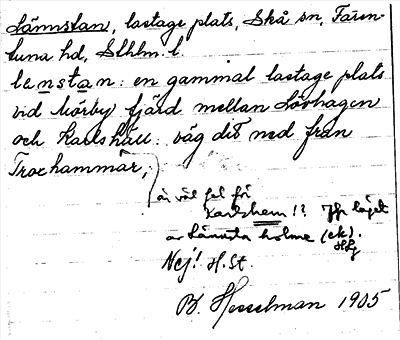 Lännstan, lastageplats, Skå sn, Fären-
tuna hd, Sthlm. l.
lęnstan: en gammal lastageplats
vid Mörby fjärd mellan Lövhagen
och Karlshäll: väg dit ned från
Troxhammar,
är väl fel för
Karlshem!? Jfr läget
av Lännsta holme (ek).
Nej! H.St.
B. Hesselman 1905